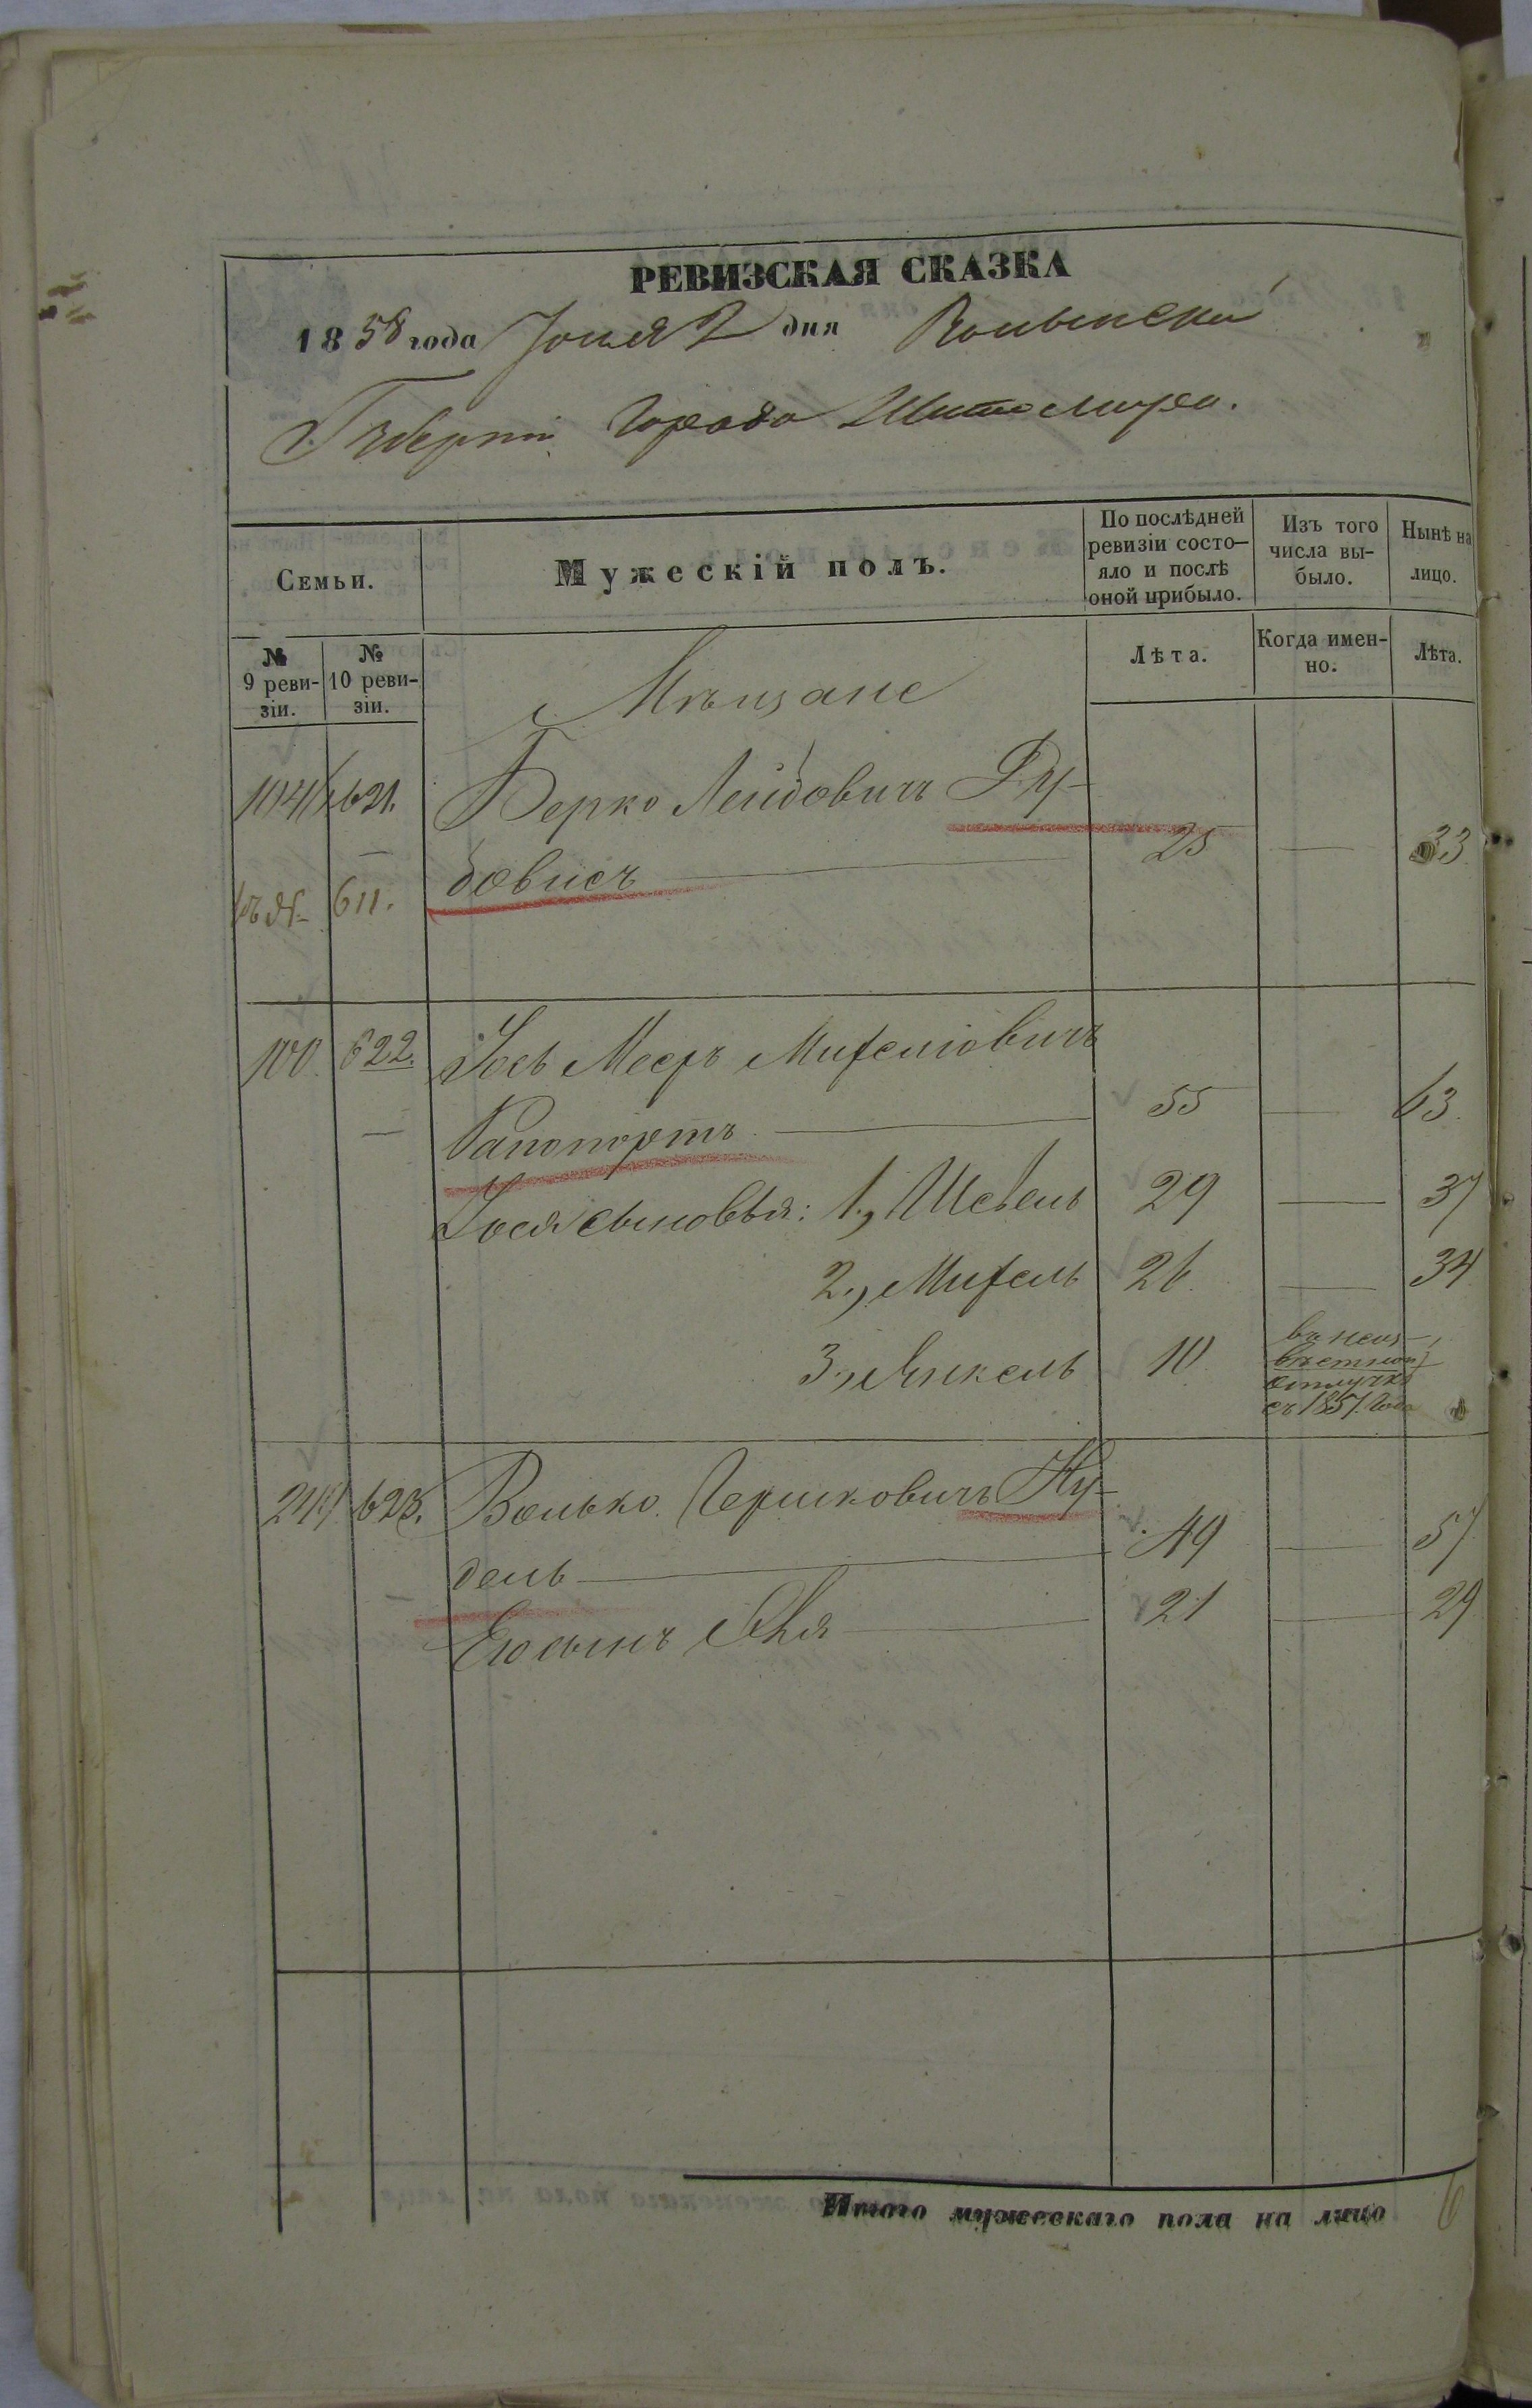 РЕВИЗСКАЯ СКАЗКА
1858 года Іюня 2 дня Волынской
Губерніи Города Житомира.
Семьи.
Мужескій полъ.
По послѣдней ревизіи состо-
яло и послѣ оной прибыло.
Изъ того числа вы-
было.
Нынѣ на лицо.
№ 9 реви-
зіи.
№ 10 реви-
зіи.
Лѣта.
Когда имен-
но.
Лѣта.
Мѣщане
621. Берко Лейбовичъ Ру-
бовисъ 25 — 33
къ № 611.
100. 622. Іось Мееръ Михелiовичъ
Рапопортъ — 55 — 63.
Іося сыновья: 1., Шевель 29 — 37
2., Михель 26. — 34
3., Янкель 10 въ неиз-
вѣстной
отлучкѣ
съ 1857. года
623. Волько Гершковичъ Ну-
дель — 49 — 57
Его сынъ — 21 — 29
Итого мужескаго пола на лицо 6